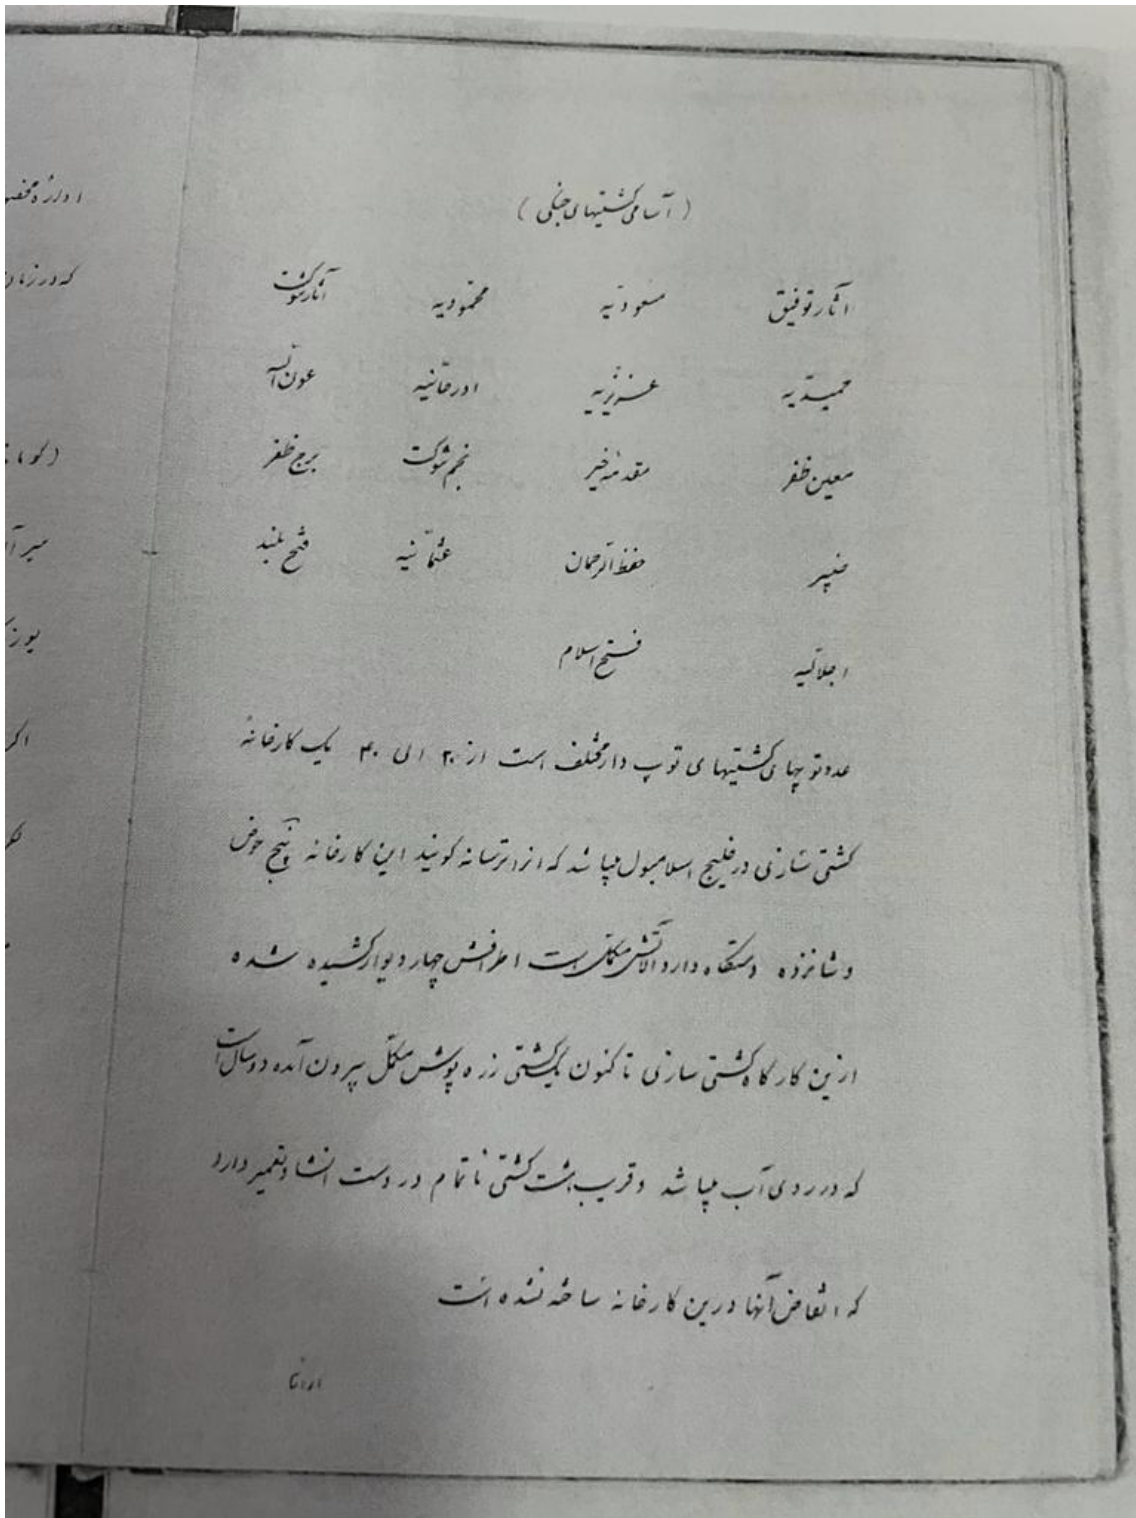 (آسامی کشتیهای جنگی)
آثار توفیق مسعودیه محمودیه آثار شوکت
حمیدیه عزیزیه اورخانیه عون الله
معین ظفر مقدمه خیر نجم شوکت برج ظفر
حفظ الرحمان عثمانیه فتح بلند
اجلالیه فتح اسلام
عدد توپهای کشتیهای توپ دار مختلف است از ۲۰ الی ۴۰ یک کارخانه
کشتی سازی در خلیج اسلامبول میباشد که انرا ترسانه گویند این کارخانه پنج حوض
و شانزده دستگاه دارد آلاتش مکمل است اطرافش چهار دیوار کشیده شده
ازین کارگاه کشتی سازی تا کنون یک کشتی زره پوش مکمل بیرون آمده دو سال است
که در روی آب میباشد و قریب هشت کشتی ناتمام در دست انشا و تعمیر دارد
که آنها درین کارخانه ساخته نشده است
اداره
که در زمان
میر